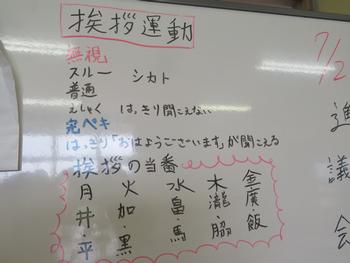 挨拶運動
無視
スルー シカト
普通
えしゃく はっきり聞こえない
完ペキ
はっきり「おはようございます」が聞こえる
挨拶の当番
月 火 水 木 金
井・平 加・黒 畠・馬 瀧・脇 廣・飯
7/2
進
議
会